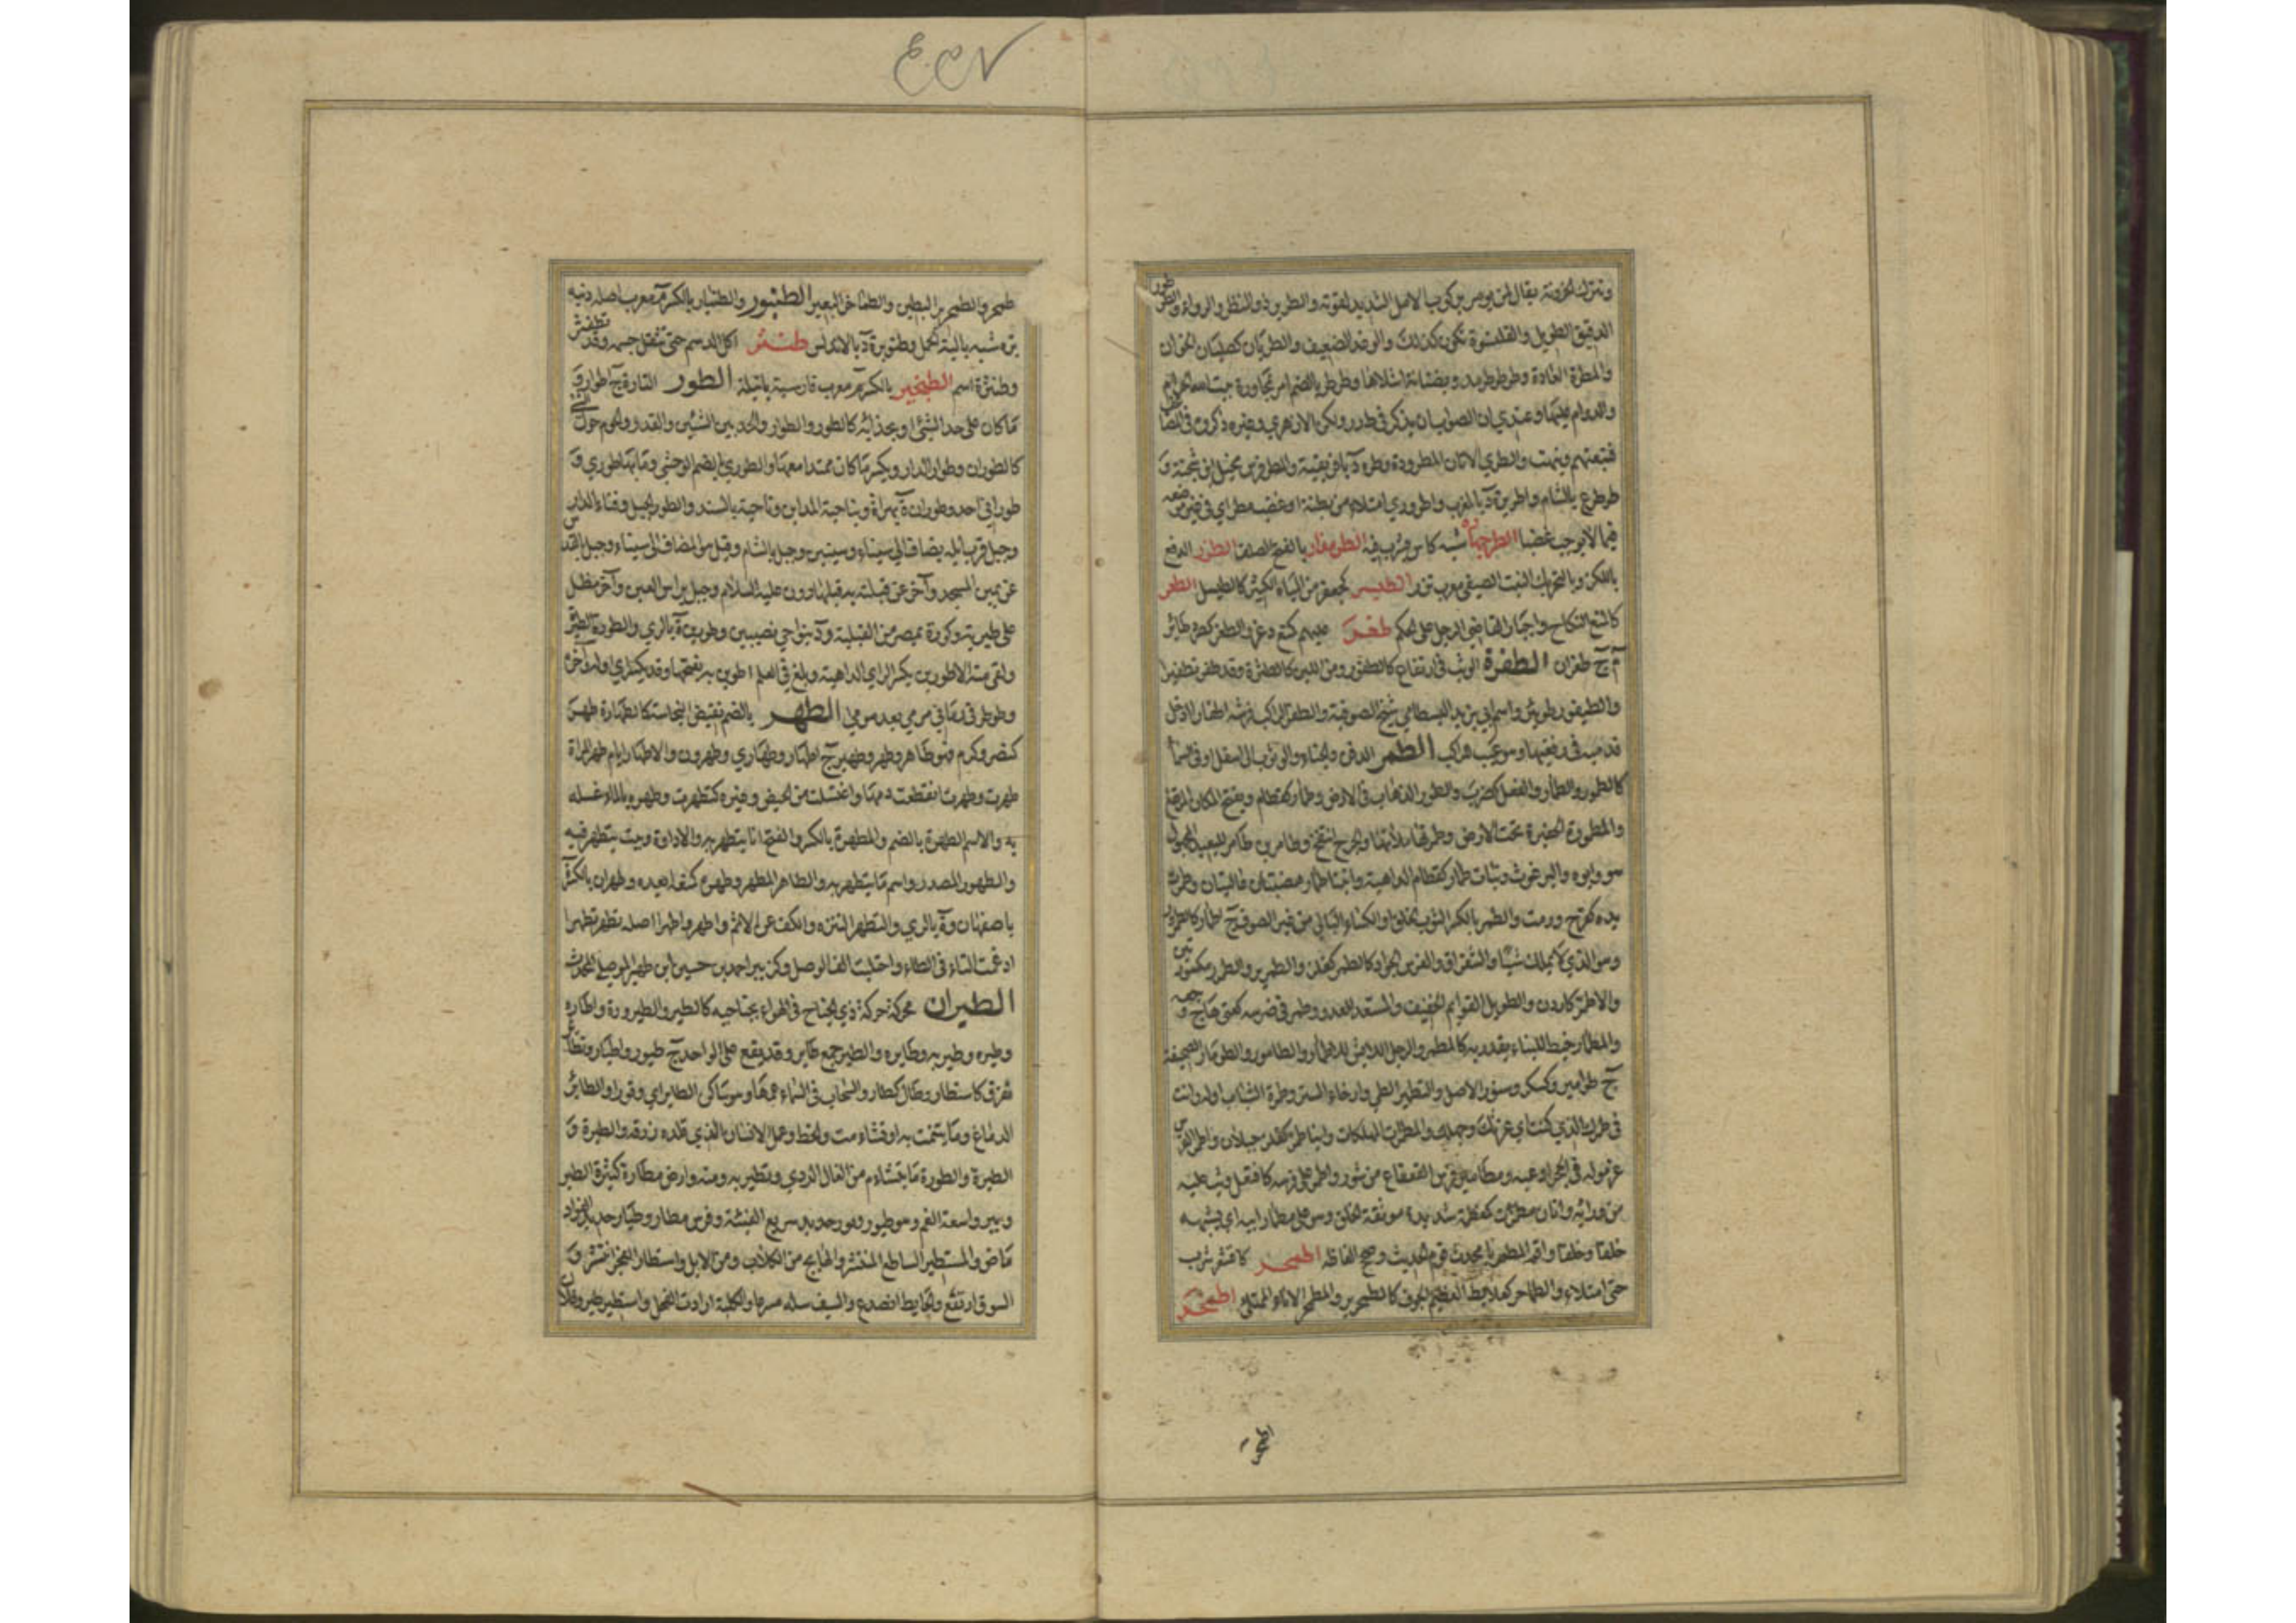 وتترك الخزونة يقال لمن يومر بركوب الامر الشديد لقوته والطرير ذو المنظر والرواء والطرطور
الدقيق الطويل والقلنسوة تكون كذلك والوغد الضعيف والطريان كصليان الخوان
والمطرة العادة وطرطر بالضم امر بمجاورة بيت الله الحرام
والدوام عليها وعندي ان الصواب ان يذكر في طور ولكن الازهري وغيره ذكروه في المضاعف
فتبعتهم ونبهت والطري الاتان المطرودة
طرطر ع بالشام واطريرة د بالمغرب واطروري امتلا من بطنة او غضب مطر اي في غير موضعه
فيما لا يوجب غضبا الطرجهارة شبه كاس يشرب فيه الطرمذار بالفتح الصلف الطزر الدفع
باللكز وبالتحريك البيت الصيفي معرب تزر الطيسر كجعفر من المياه الكثير كالطيسل الطعر
كالمنع النكاح واجبار القاضي الرجل على الحكم طغر عليهم كمنع دغر والطغر كصرد طائر
م ج طغران الطفرة الوثب في ارتفاع كالطفور ومن اللبن كالطثرة وقد طفر تطفيرا
والطيفور طويئر واسم ابي يزيد البسطامي شيخ الصوفية
قدميه في رفغيها وهو عيب للراكب الطمر الدفن والخباء والوثوب الى اسفل او في السماء
كالطمور والطمار والفعل كضرب والطمور الذهاب في الارض وطمار كقطام ويفتح المكان المرتفع
والمطمورة الحفيرة تحت الارض وطمرتها ملأتها والجرح انتفخ وطامر بن طامر للبعيد المجهول
هو وابوه والبرغوث وبنات طمار كقطام الداهية وابنا طمار هضبتان وطمرت
يده كفرح ورمت والطمر بالكسر الثوب الخلق او الكساء البالي من غير الصوف ج اطمار كالطمرور
وهو الذي لا يملك شيئا والشقراق والفرس الجواد كالطمر كفلز والطمرير والطمرر مكسورتين
والاطمر كاردن والطويل القوائم الخفيف والمستعد للعدو وطمر في ضرسه كعني هاج وجعه
والمطمار خيط للبناء يقدر به كالمطمر والرجل اللابس للاطمار والطامور والطومار الصحيفة
ج طوامير وكسكر وسنور الاصل والتطمير الطي وارخاء الستر وطمرة الشباب اوله وانت
في طمرك الذي كنت اي غرتك وجهلك والمطمرات المهلكات وابنا طمر كفلز جبلان واطمر الفرس
غرموله في الحجر اوعبه ومطامير فرس القعقاع من شور واطمر على فرسه كافتعل وثب عليه
من ورائه واتان مطمرة كمعظمة شديدة موثقة الخلق وهو على مطمار ابيه اي يشبهه
خلقا وخلقا واقم المطمر يا محدث قوم الحديث وصحح الفاظه اطمحر كاقشعر شرب
حتى امتلاء والطماحر كعلابط العظيم الجوف كالطمحرير والمطمحر الاناء الممتلئ اطمخر
اطمخر
٤٥٧
طمحر والطمخرير البطين والطماخر البعير الطنبور والطنبار بالكسر م معرب اصله دنبه
بره شبه بالية الحمل وطنوبرة د بالاندلس طنثر اكل الدسم حتى ثقل جسمه وقد تطنثر
وطنثرة اسم الطنجير بالكسر م معرب فارسيته باتيلة الطور التارة ج اطوار و
ما كان على حد الشئ او بحذائه كالطور والطوار والحد بين الشيئين والقدر والحوم حول الشئ
كالطوران وطوار الدار ويكسر ما كان ممتدا معها والطوري بالضم الوحشي وما بها طوري و
طوراني احد وطوران ة بهراة وناحية المداين وناحية بالسند والطور الجبل وفناء الدار
وجبل قرب ايلة يضاف الى سيناء وسينين وجبل بالشام وقيل هو المضاف الى سيناء وجبل بالقدس
عن يمين المسجد وآخر عن قبلته به قبر هارون عليه السلام وجبل براس العين وآخر مطل
على طبرية وكورة بمصر من القبلية و د بنواحي نصيبين وطورين ة بالري والطورة الطيرة
ولقي منه الاطورين بكسر الراء اي الداهية وبلغ في العلم اطوريه بفتحها وقد يكسر اي اوله واخره
وطوطر في رماني مرمي بعد مرمى الطهر بالضم نقيض النجاسة كالطهارة طهر
كنصر وكرم فهو طاهر وطهر وطهير ج اطهار وطهاري وطهرون والاطهار ايام طهر المراة
طهرت وطهرت انقطعت دمها واغتسلت من الحيض وغيره كتطهرت وطهره بالماء غسله
به والاسم الطهرة بالضم والمطهرة بالكسر والفتح اناء يتطهر به والاداوة وبيت يتطهر فيه
والطهور المصدر واسم ما يتطهر به والطاهر المطهر وطهره كمنعه ابعده وطهران بالكسر ة
باصفهان و ة بالري والتطهر التنزه والكف عن الاثم واطهر واطهرا اصله تطهر تطهرا
ادغمت التاء في الطاء واجتلبت الف الوصل وكزبير احمد بن حسين ابن طهير الموصلي المحدث
الطيران محركة حركة ذي الجناح في الهواء بجناحيه كالطير والطيرورة واطاره
وطيره وطير به وطايره والطير جمع طاير وقد يقع على الواحد ج طيور واطيار وتطاير
تفرق كاستطار وطال كطار والسحاب في السماء عمها وهو ساكن الطاير اي وقور والطائر
الدماغ وما تيمنت به او تشاءمت والحظ وعمل الانسان الذي قلده ورزقه والطيرة و
الطيرة والطورة ما يتشاءم من الفال الردي وتطير به ومنه وارض مطارة كثيرة الطير
وبير واسعة الفم وهو طيور فيور حديد سريع الفيئة وفرس مطار وطيار حديد الفؤاد
ماض والمستطير الساطع المنتشر والهايج من الكلاب ومن الابل واستطار الفجر انتشر و
السوق ارتفع والحايط انصدع والسيف سله مسرعا والكلبة ارادت الفحل واستطير طير وفلان